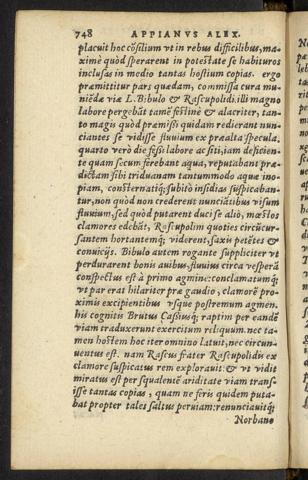 748 APPIANVS ALEX.
placuit hoc cōsilium vt in rebus difficilibus, ma-
ximè quòd sperarent in potestate se habituros
inclusas in medio tantas hostium copias. ergo
præmittitur pars quædam, commissa cura mu-
niēdæ viæ L. Bibulo & Rascupolidi. illi magno
labore pergebāt tamē festinē & alacriter, tan-
to magis quòd præmissi quidam redierant nun-
ciantes se vidisse fluuium ex præalta specula.
quarto verò die fessi labore ac siti, iam deficien-
te quam secum ferebant aqua, reputabant præ-
dictam sibi triduanam tantummodo aquæ ino-
piam, consternatiq́; subitò insidias suspicaban-
tur, non quòd non crederent nunciatibus visum
fluuium, sed quòd putarent duci se aliò, mœstos
clamores edebāt, Rascupolim quoties circūcur-
santem hortantemq́; viderent, saxis petētes &
conuicijs. Bibulo autem rogante suppliciter vt
perdurarent bonis auibus, fluuius circa vesperā
conspectus est à primo agmine: conclamatumq́;
vt par erat hilariter præ gaudio, clamorē pro-
ximis excipientibus vsque postremum agmen.
his cognitis Brutus Cassiusq́; raptim per eandē
viam traduxerunt exercitum reliquum. nec ta-
men hostem hoc iter omnino latuit, nec circum-
uentus est. nam Rascus frater Rascupolidis ex
clamore suspicatus rem explorauit: & vt vidit
miratus est per squalentē ariditate viam trans-
isse tantas copias, quam ne feris quidem puta-
bat propter tales saltus peruiam: renunciauitq́;
Norbano